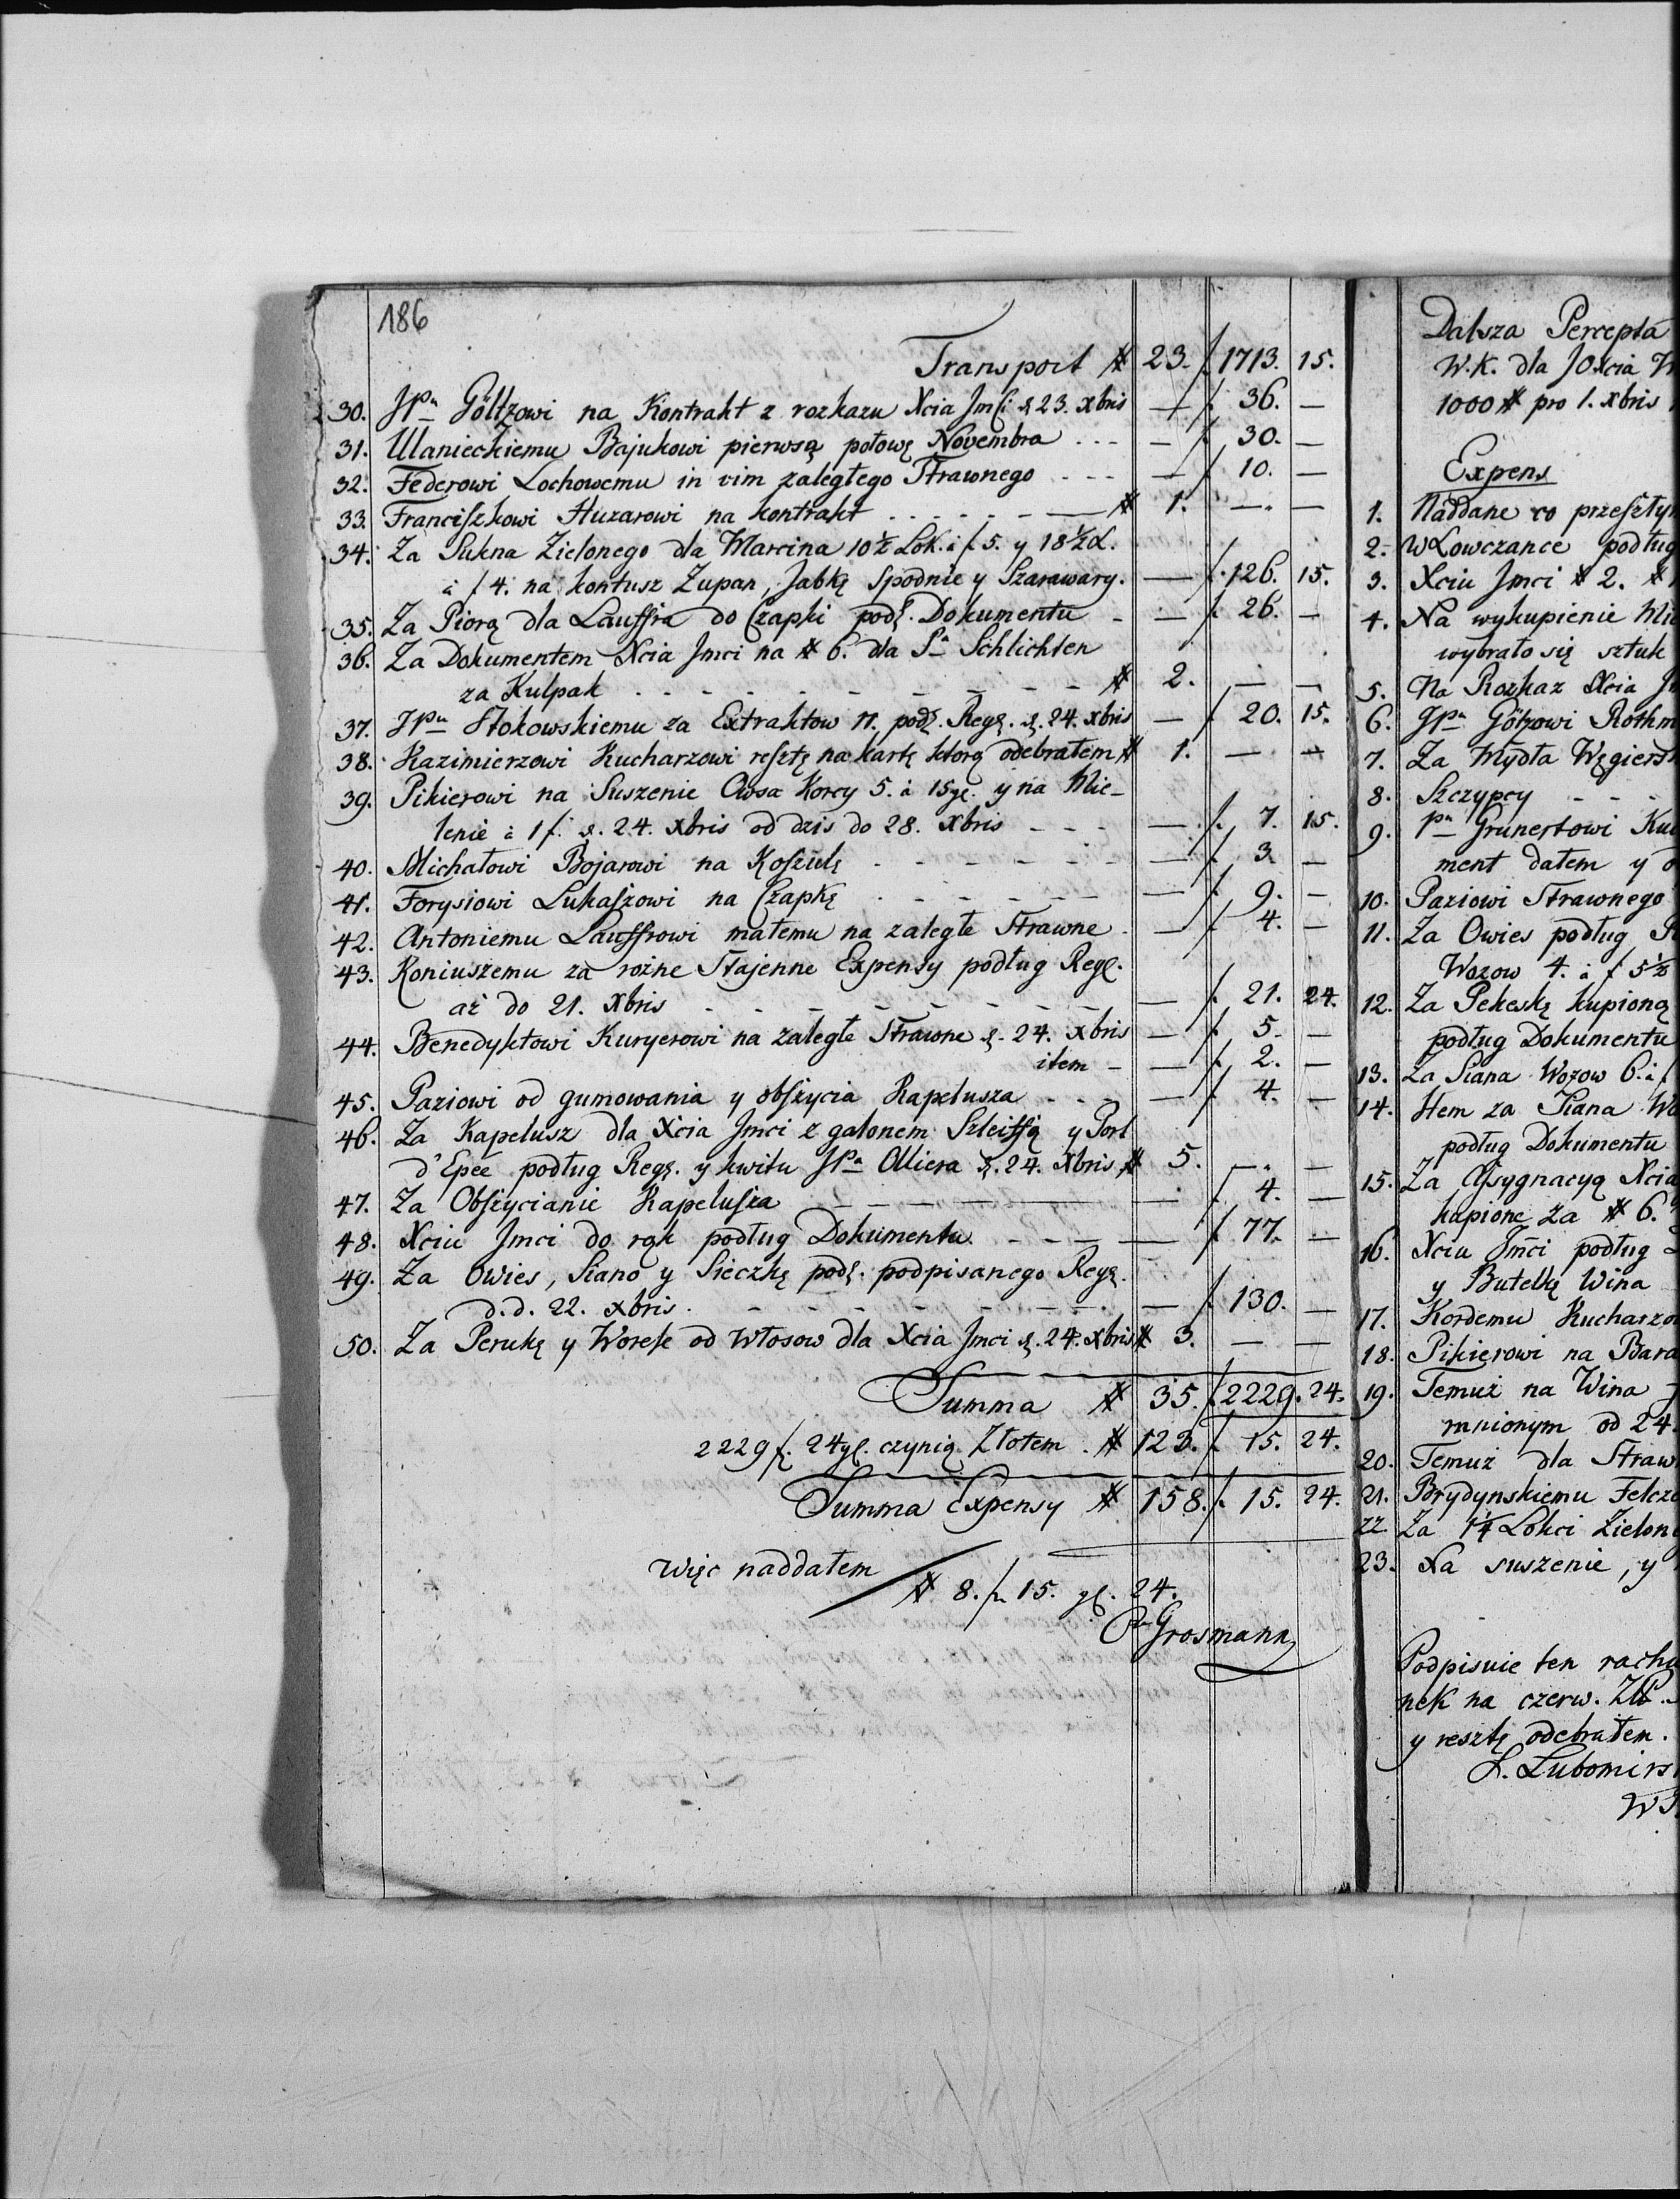 186
Transport # 23. f. 1713. 15.
30. JPu Göltzowi na Kontrakt z rozkazu Xcia Jmci d. 23. xbris — f. 36. —
31. Ulanieckiemu Bajukowi pierwszą połowę Novembra - - - — f. 30. —
32. Federowi Lochowemu in vim zaległego Strawnego - - - — f. 10. —
33. Franciszkowi Huzarowi na kontrakt - - - - # 1. — —
34. Za Sukna Zielonego dla Marcina 10½ Lok. à f. 5. y 18½ L.
à f 4. na kontusz Zupan, Jabkę Spodnie y Szarawary. — f. 126. 15.
35. Za Piorą dla Lauffra do Czapki podł. Dokumentu - — f. 26. —
36. Za Dokumentem Xcia Jmci na # 6. dla Pa Schlichten
za Kulpak - - - - - - - - # 2. — —
37. JPu Stokowskiemu za Extraktow 11. podł. Reg. d. 24. xbris — f. 20. 15.
38. Kazimierzowi Kucharzowi resztę na kartę ktorą odebrałem # 1. — —
39. Pikierowi na Suszenie Owsa Korcy 5. à 15 gl. y na Mie-
lenie à 1 f. d. 24. xbris od dzis do 28. xbris - - - — f. 7. 15.
40. Michałowi Bojarowi na Koszulę - - - - - — f. 3. —
41. Forysiowi Lukaszowi na Czapkę - - - - - — f. 9. —
42. Antoniemu Lauffrowi małemu na zaległe Strawne - — f. 4. —
43. Koniuszemu za rożne Stajenne Expensy podług Reg.
aż do 21. xbris - - - - - - - — f. 21. 24.
44. Benedyktowi Kuryerowi na zaległe Strawne d. 24. xbris — f. 5. —
item - — f. 2. —
45. Paziowi od gumowania y obszycia Kapelusza - - - — f. 4. —
46. Za Kapelusz dla Xcia Jmci z galonem Szleiffą y Port
d'Epée podług Reg. y kwitu JPa Olliera d. 24. xbris # 5. — —
47. Za Obszycianie Kapelusza - - - - — f. 4. —
48. Xciu Jmci do rąk podług Dokumentu - - - — f. 77. —
49. Za Owies, Siano y Sieczkę podł. podpisanego Reg.
d. d. 22. xbris. - - - - - - - — f. 130. —
50. Za Perukę y Worek od włosow dla Xcia Jmci d. 24. xbris # 3. — —
Summa # 35. f. 2229. 24.
2229 f. 24 gl. czynią Złotem. # 123. f. 15. 24.
Summa Expensy # 158. f. 15. 24.
więc naddałem # 8. f. 15. gl. 24.
Grosmann
Dalsza Percepta
W. K. dla JOXcia
1000 # pro 1. xbris
Expens
1. Naddane co przeszłym
2. W Lowczance podług
3. Xciu Jmci # 2. #
4. Na wykupienie
wybrało się sztuk
5. Na Rozkaz Xcia
6. JPu Götzowi
7. Za Mydła
8. Szczypcy - - -
9. Pu Grunertowi
ment dałem y
10. Paziowi Strawnego
11. Za Owies podług
Wozow 4. à f 5½
12. Za Pekeskę kupioną
podług Dokumentu
13. Za Siana Wozow 6. à f
14. Item za Siana
podług Dokumentu
15. Za Assygnacyą Xcia
kupione za # 6.
16. Xciu Jmci podług
y Butelkę Wina
17. Kordemu
18. Pikierowi na
19. Temuż na Wina
mnionym od 24.
20. Temuż dla
21. Brydynskiemu
22. Za 1¼ Lokci
23. Na suszenie, y
Podpisuie ten rachu
nek na czerw. Zł.
y resztę odebrałem.